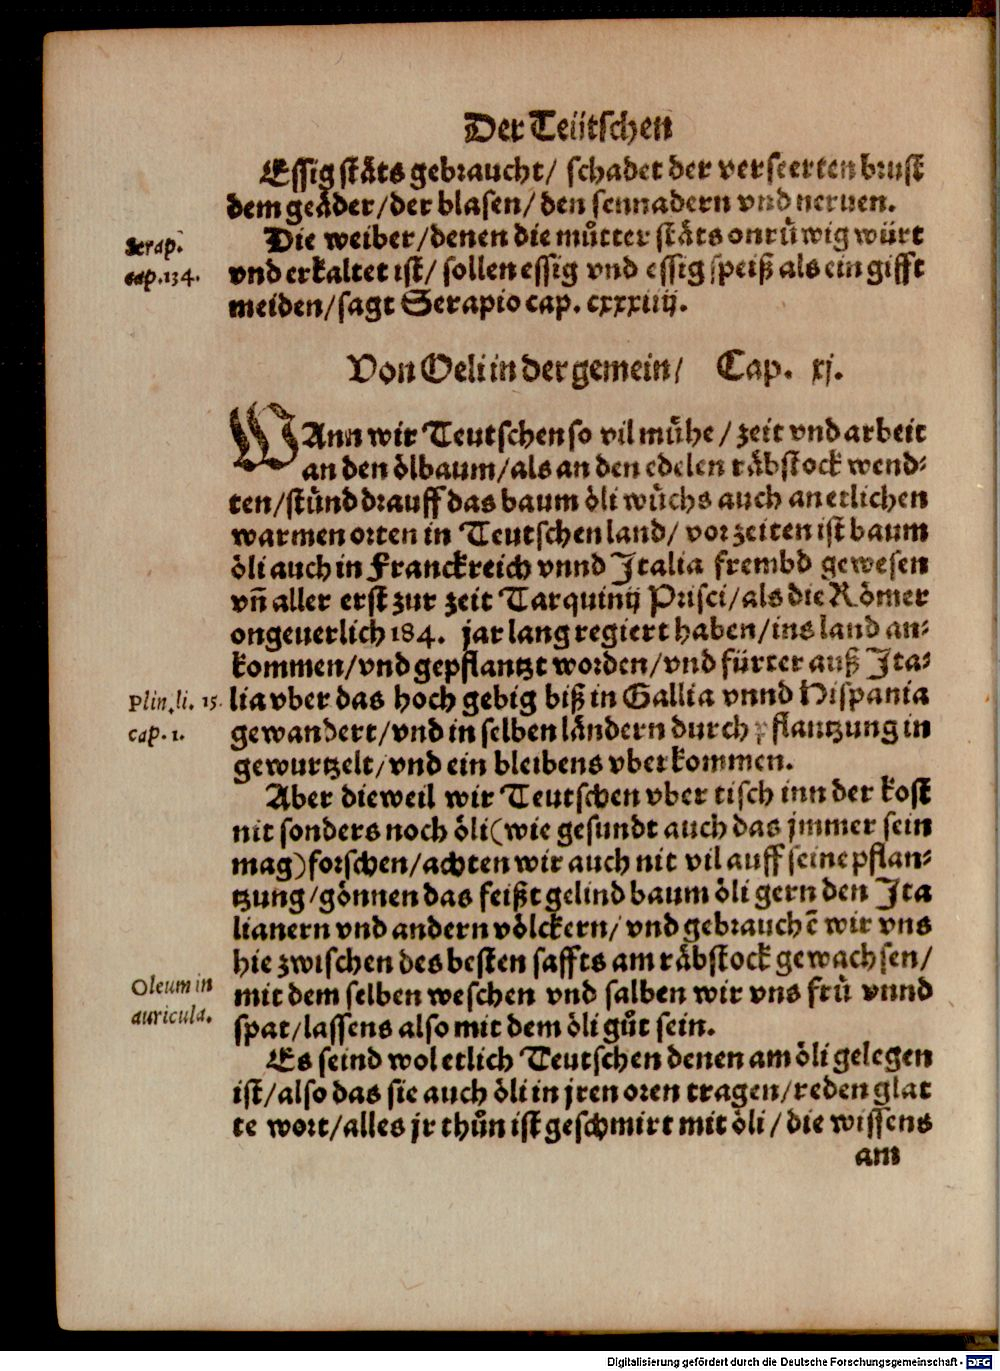 Der Teütschen
Essig stäts gebraucht/ schadet der verseerten brust
dem geäder/der blasen/den sennadern vnd neruen.
Serap.
Die weiber/denen die můtter stäts onrůwig würt
cap.134.
vnd erkaltet ist/ sollen essig vnd essig speiß als ein gifft
meiden/sagt Serapio cap. cxxxiiij.
Von Oeli in der gemein/ Cap. xj.
WAnn wir Teutschen so vil mühe/zeit vnd arbeit
an den ölbaum/als an den edelen räbstock wend-
ten/stünd drauff das baum öli wüchs auch an etlichen
warmen orten in Teutschen land/ vor zeiten ist baum
öli auch in Franckreich vnnd Italia frembd gewesen
vñ aller erst zur zeit Tarquinij Prisci/als die Römer
ongeuerlich 184. jar lang regiert haben/ins land an-
kommen/vnd gepflantzt worden/vnd fürter auß Ita-
Plin. li. 15.
lia vber das hoch gebig biß in Gallia vnnd Hispania
cap. 1.
gewandert/vnd in selben ländern durch pflantzung in
gewurtzelt/vnd ein bleibens vberkommen.
Aber dieweil wir Teutschen vber tisch inn der kost
nit sonders noch öli(wie gesundt auch das jmmer sein
mag)forschen/achten wir auch nit vil auff seine pflan-
tzung/gönnen das feißt gelind baum öli gern den Ita
lianern vnd andern völckern/ vnd gebrauchẽ wir vns
hie zwischen des besten saffts am räbstock gewachsen/
Oleum in
mit dem selben weschen vnd salben wir vns frü vnnd
auricula.
spat/lassens also mit dem öli gůt sein.
Es seind wol etlich Teutschen denen am öli gelegen
ist/also das sie auch öli in jren oren tragen/reden glat
te wort/alles jr thůn ist geschmirt mit öli/die wissens
am
Digitalisierung gefördert durch die Deutsche Forschungsgemeinschaft - DFG